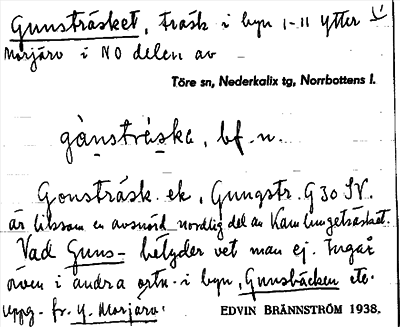 Gunsträsket, träsk i byn 1-11 Ytter
Morjärv i NO delen av
Töre sn, Nederkalix tg, Norrbottens l.
gànstràska, bf. n.
Gonsträsk. ek, Gungstr. G 30 SV.
är liksom en avsnörd nordlig del av Kamlungeträsket.
Vad Guns- betyder vet man ej. Ingår
även i andra ortn. i byn, Gunsbäcken etc.
uppg. fr. Y. Morjärv.
EDVIN BRÄNNSTRÖM 1938.